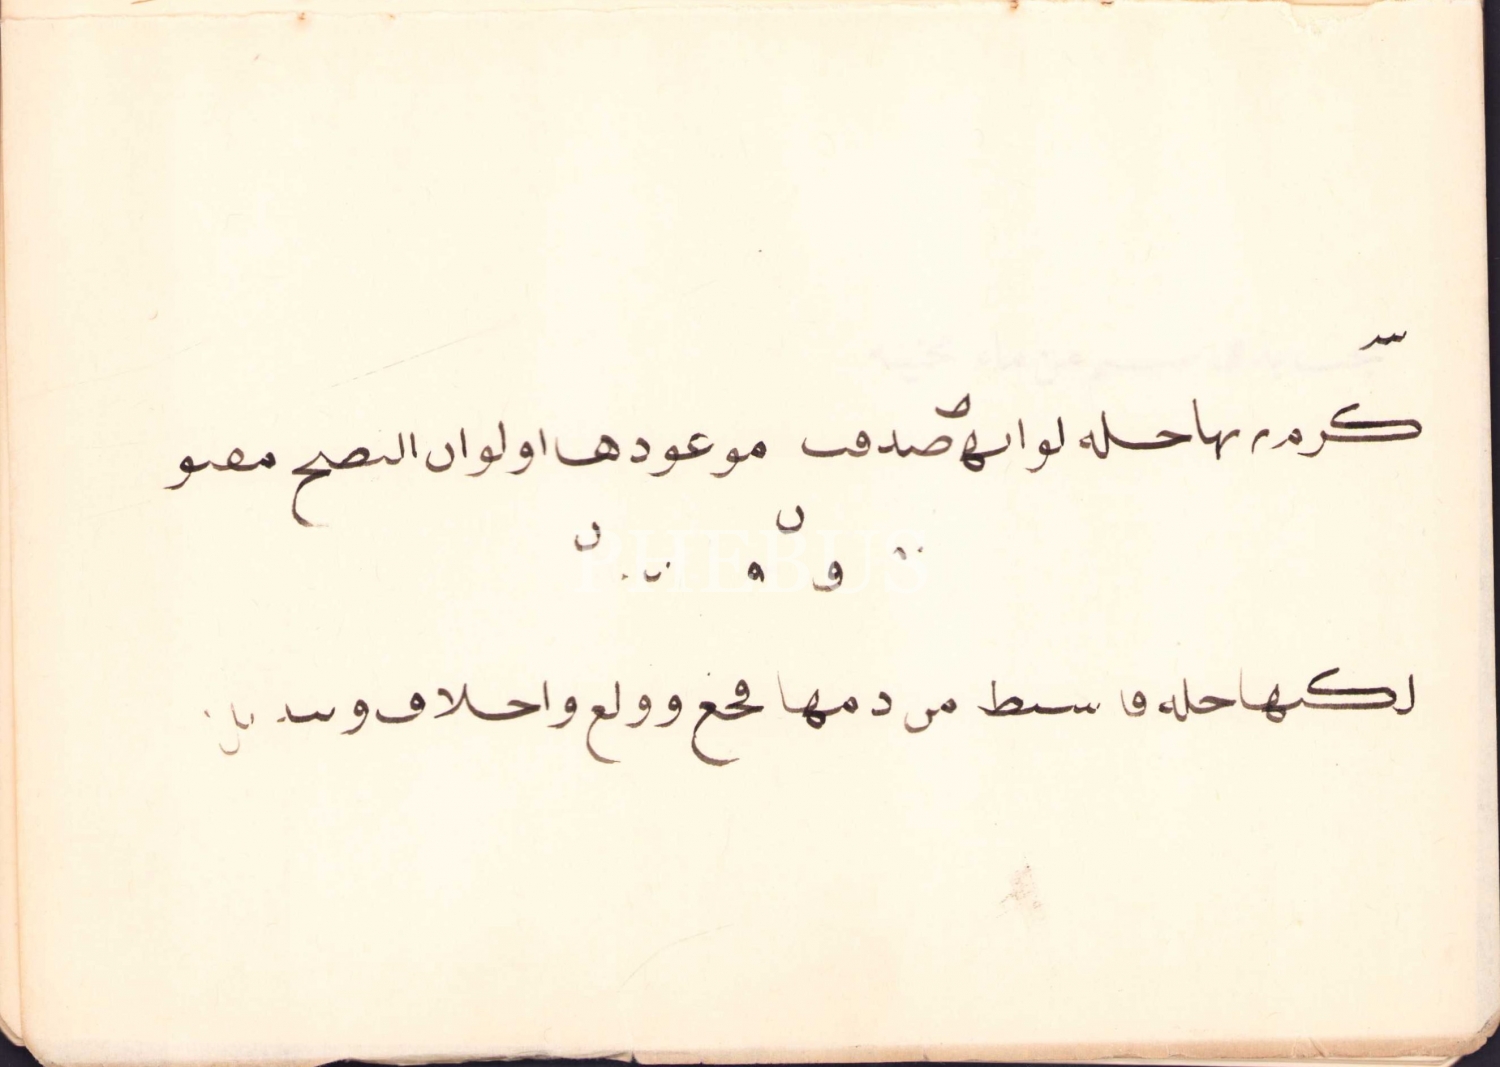 كرم بها حله لو انها صدقت موعودها او لو ان النصح مقبو
PHEBUS
لكنها حله قد سيط من دمها فجع وولع واخلاف وتبديل